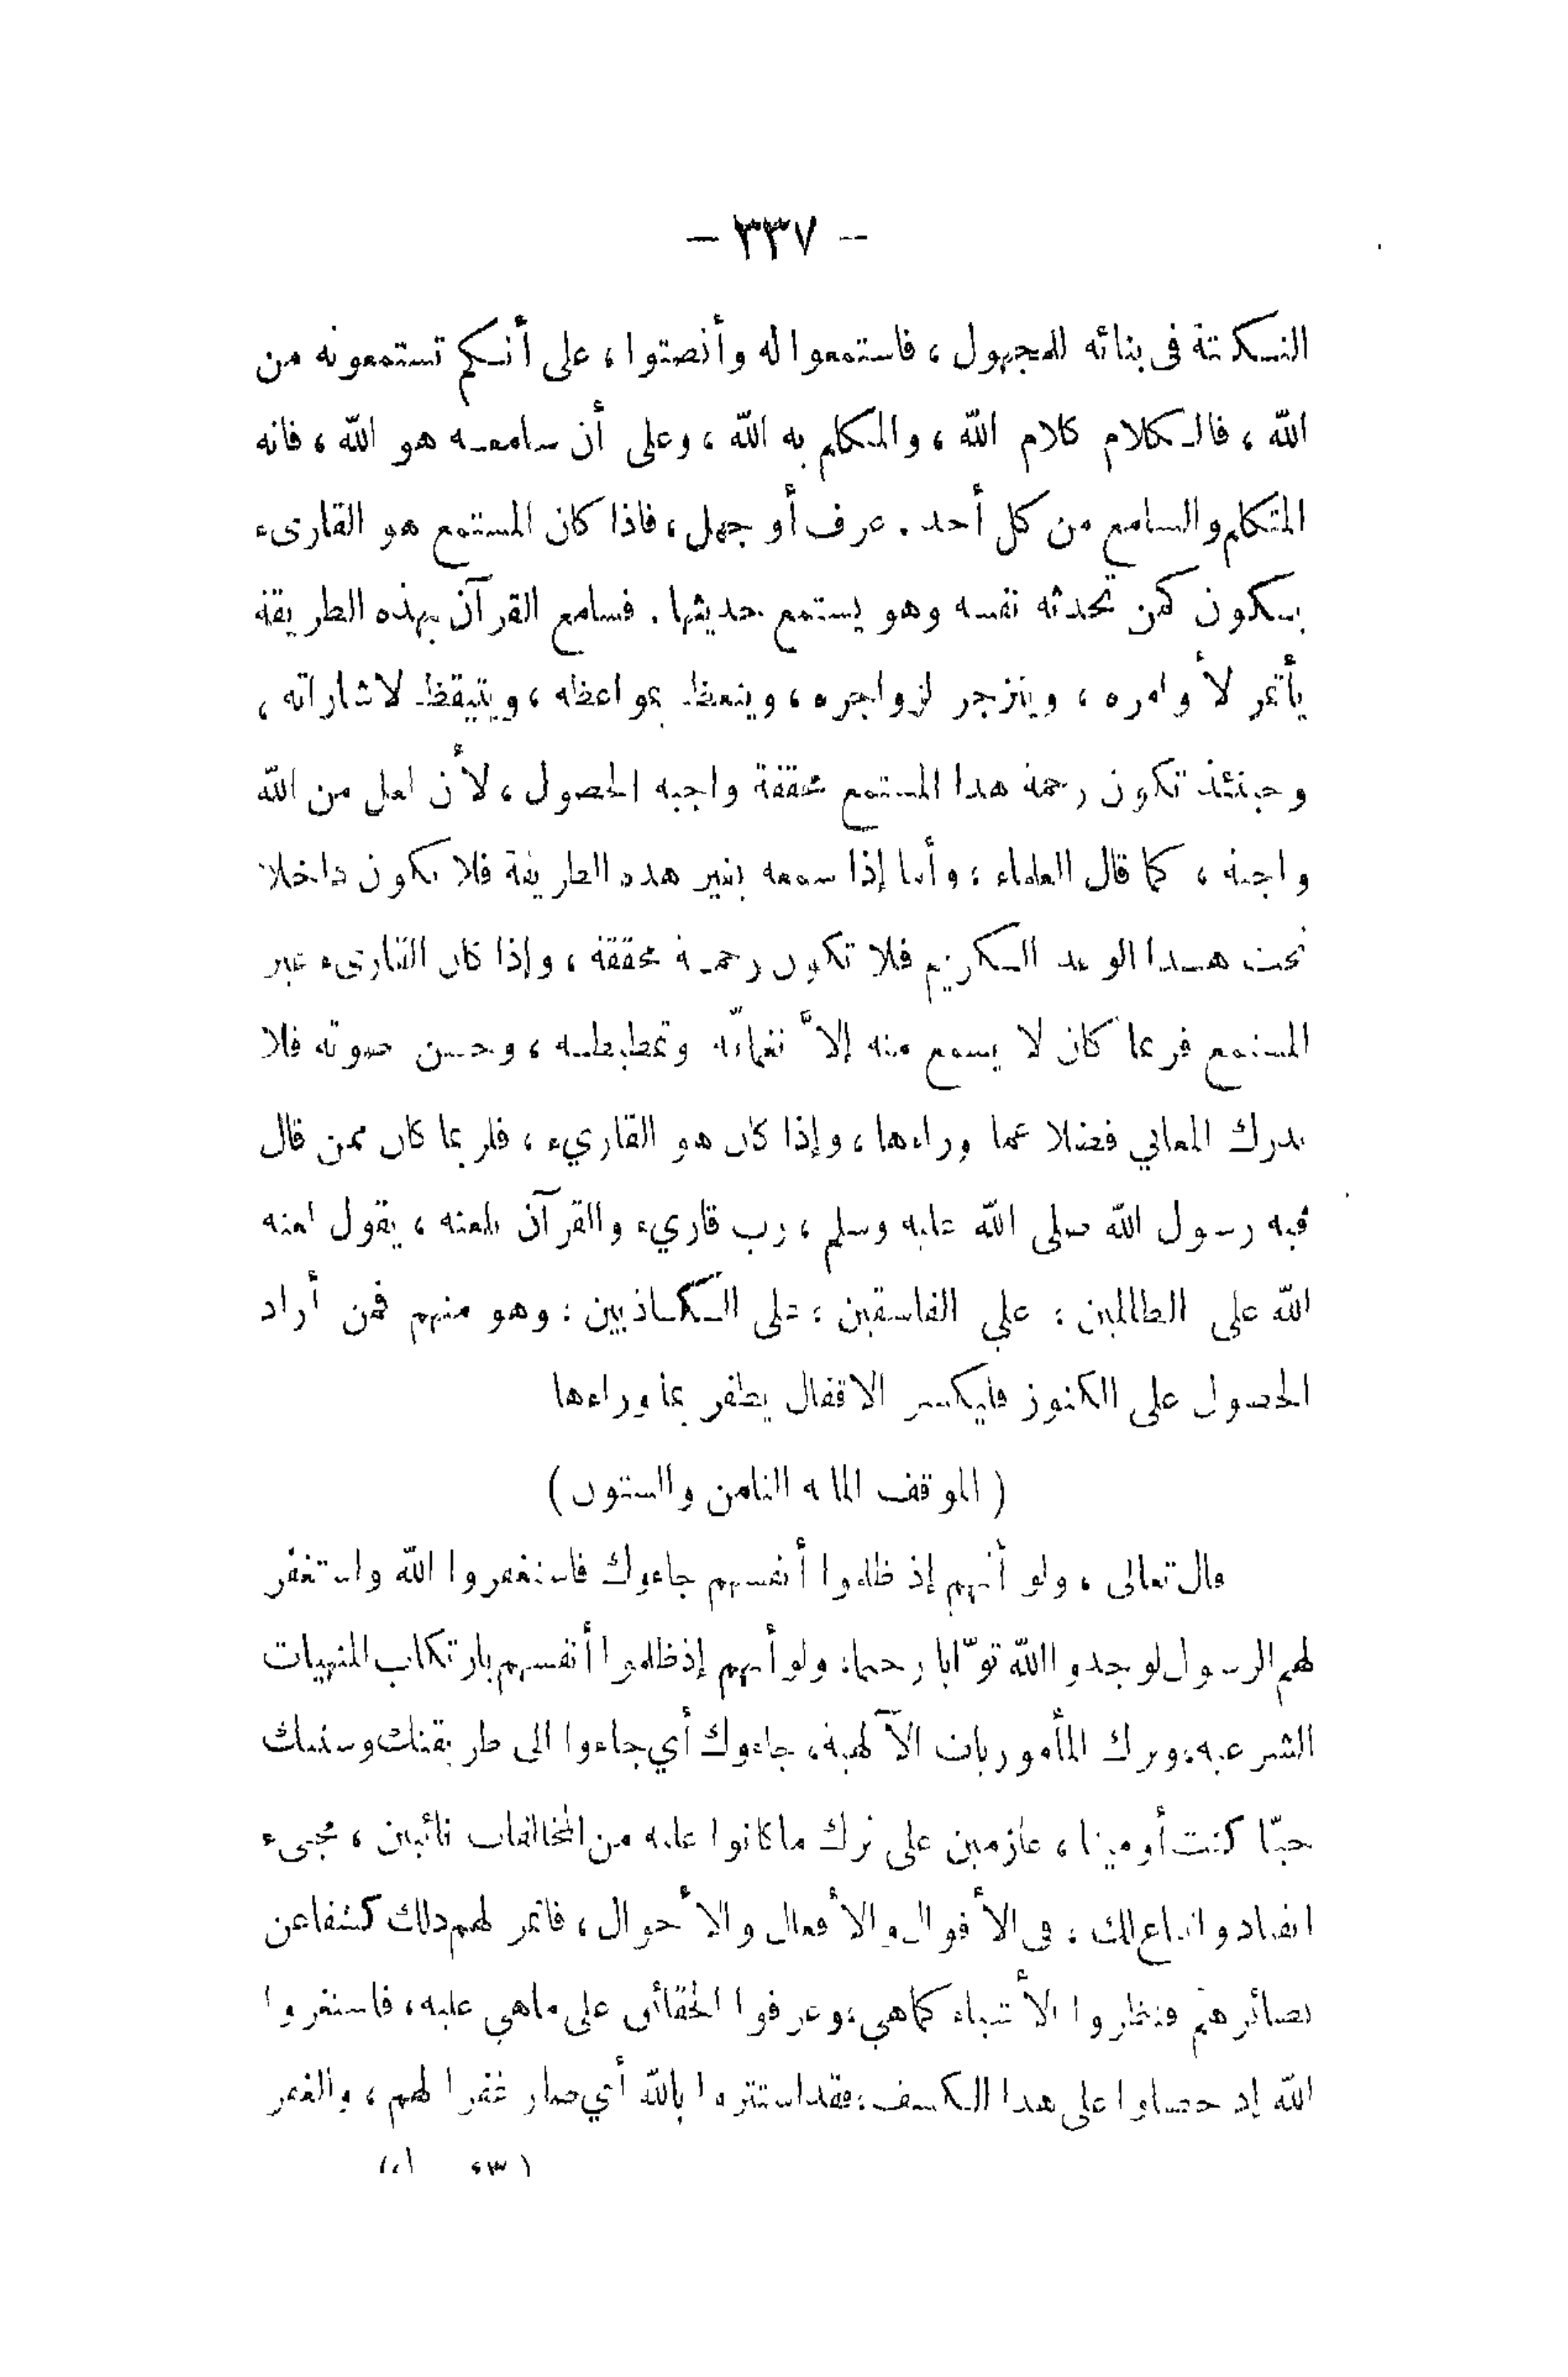 - ٣٣٧ -
النكتة فى بنائه للمجهول ، فاستمعوا له وأنصتوا ، على أنكم تستمعونه من
الله ، فالكلام كلام الله ، والمتكلم به الله ، وعلى أن سامعه هو الله ، فانه
المتكلم والسامع من كل أحد . عرف أو جهل ، فاذا كان المستمع هو القارىء
يكون كمن تحدثه نفسه وهو يستمع حديثها . فسامع القرآن بهذه الطريقة
يأتمر لأوامره ، وينزجر لزواجره ، ويتعظ بمواعظه ، ويتيقظ لاشاراته ،
وحينئذ تكون رحمة هذا المستمع محققة واجبة الحصول ، لأن لعل من الله
واجبة ، كما قال العلماء ؛ وأما إذا سمعه بغير هذه الطريقة فلا يكون داخلا
تحت هذا الوعد الكريم فلا تكون رحمة محققة ، وإذا كان القارىء غير
المستمع فربما كان لا يسمع منه إلاّ نغماته وتمطيطه ، وحسن صوته فلا
يدرك المعاني فضلا عما وراءها ، وإذا كان هو القاريء ، فلربما كان ممن قال
فيه رسول الله صلى الله عليه وسلم ، رب قاريء والقرآن يلعنه ، يقول لعنة
الله على الظالمين : علي الفاسقين : على الكاذبين : وهو منهم فمن أراد
الحصول على الكنوز فليكسر الاقفال يظفر بما وراءها
( الموقف المائة الثامن والستون )
قال تعالى ، ولو أنهم إذ ظلموا أنفسهم جاءوك فاستغفروا الله واستغفر
لهم الرسول لوجدوا الله توّابا رحيما : ولو أنهم إذ ظلموا أنفسهم بارتكاب المنهيات
الشرعية : وترك المأموربات الآلهية ، جاءوك أي جاءوا الى طريقتك وسنتك
حيّا كنت أو ميتا ، عازمين على ترك ما كانوا عليه من المخالفات تائبين ، مجىء
انقياد واتباع لك : فى الأقوال والأفعال والأحوال ، فاثمر لهم ذلك كشفا عن
بصائرهم فنظروا الأشياء كما هي : وعرفوا الحقائق على ما هي عليه ، فاستغفروا
الله إذ حصلوا على هذا الكشف : فقد استتروا بالله أي صار غفرا لهم ، والغفر